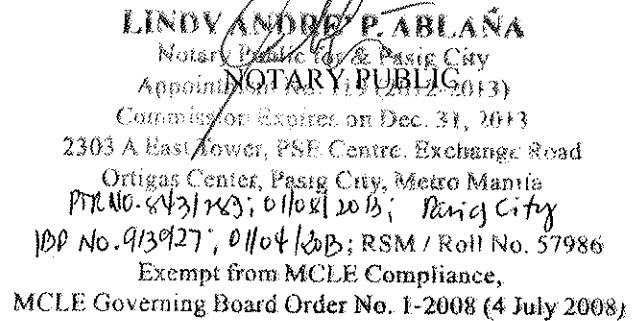 LINDY ANDRE' P. ABLAÑA
Notary Public for & Pasig City
NOTARY PUBLIC
Appointment No. 119 (2012-2013)
Commission Expires on Dec. 31, 2013
2303 A East Tower, PSE Centre. Exchange Road
Ortigas Center, Pasig City, Metro Manila
PTR NO. 8431283; 01/08/2013; Pasig City
IBP No. 913927; 01/04/2013; RSM / Roll No. 57986
Exempt from MCLE Compliance,
MCLE Governing Board Order No. 1-2008 (4 July 2008)